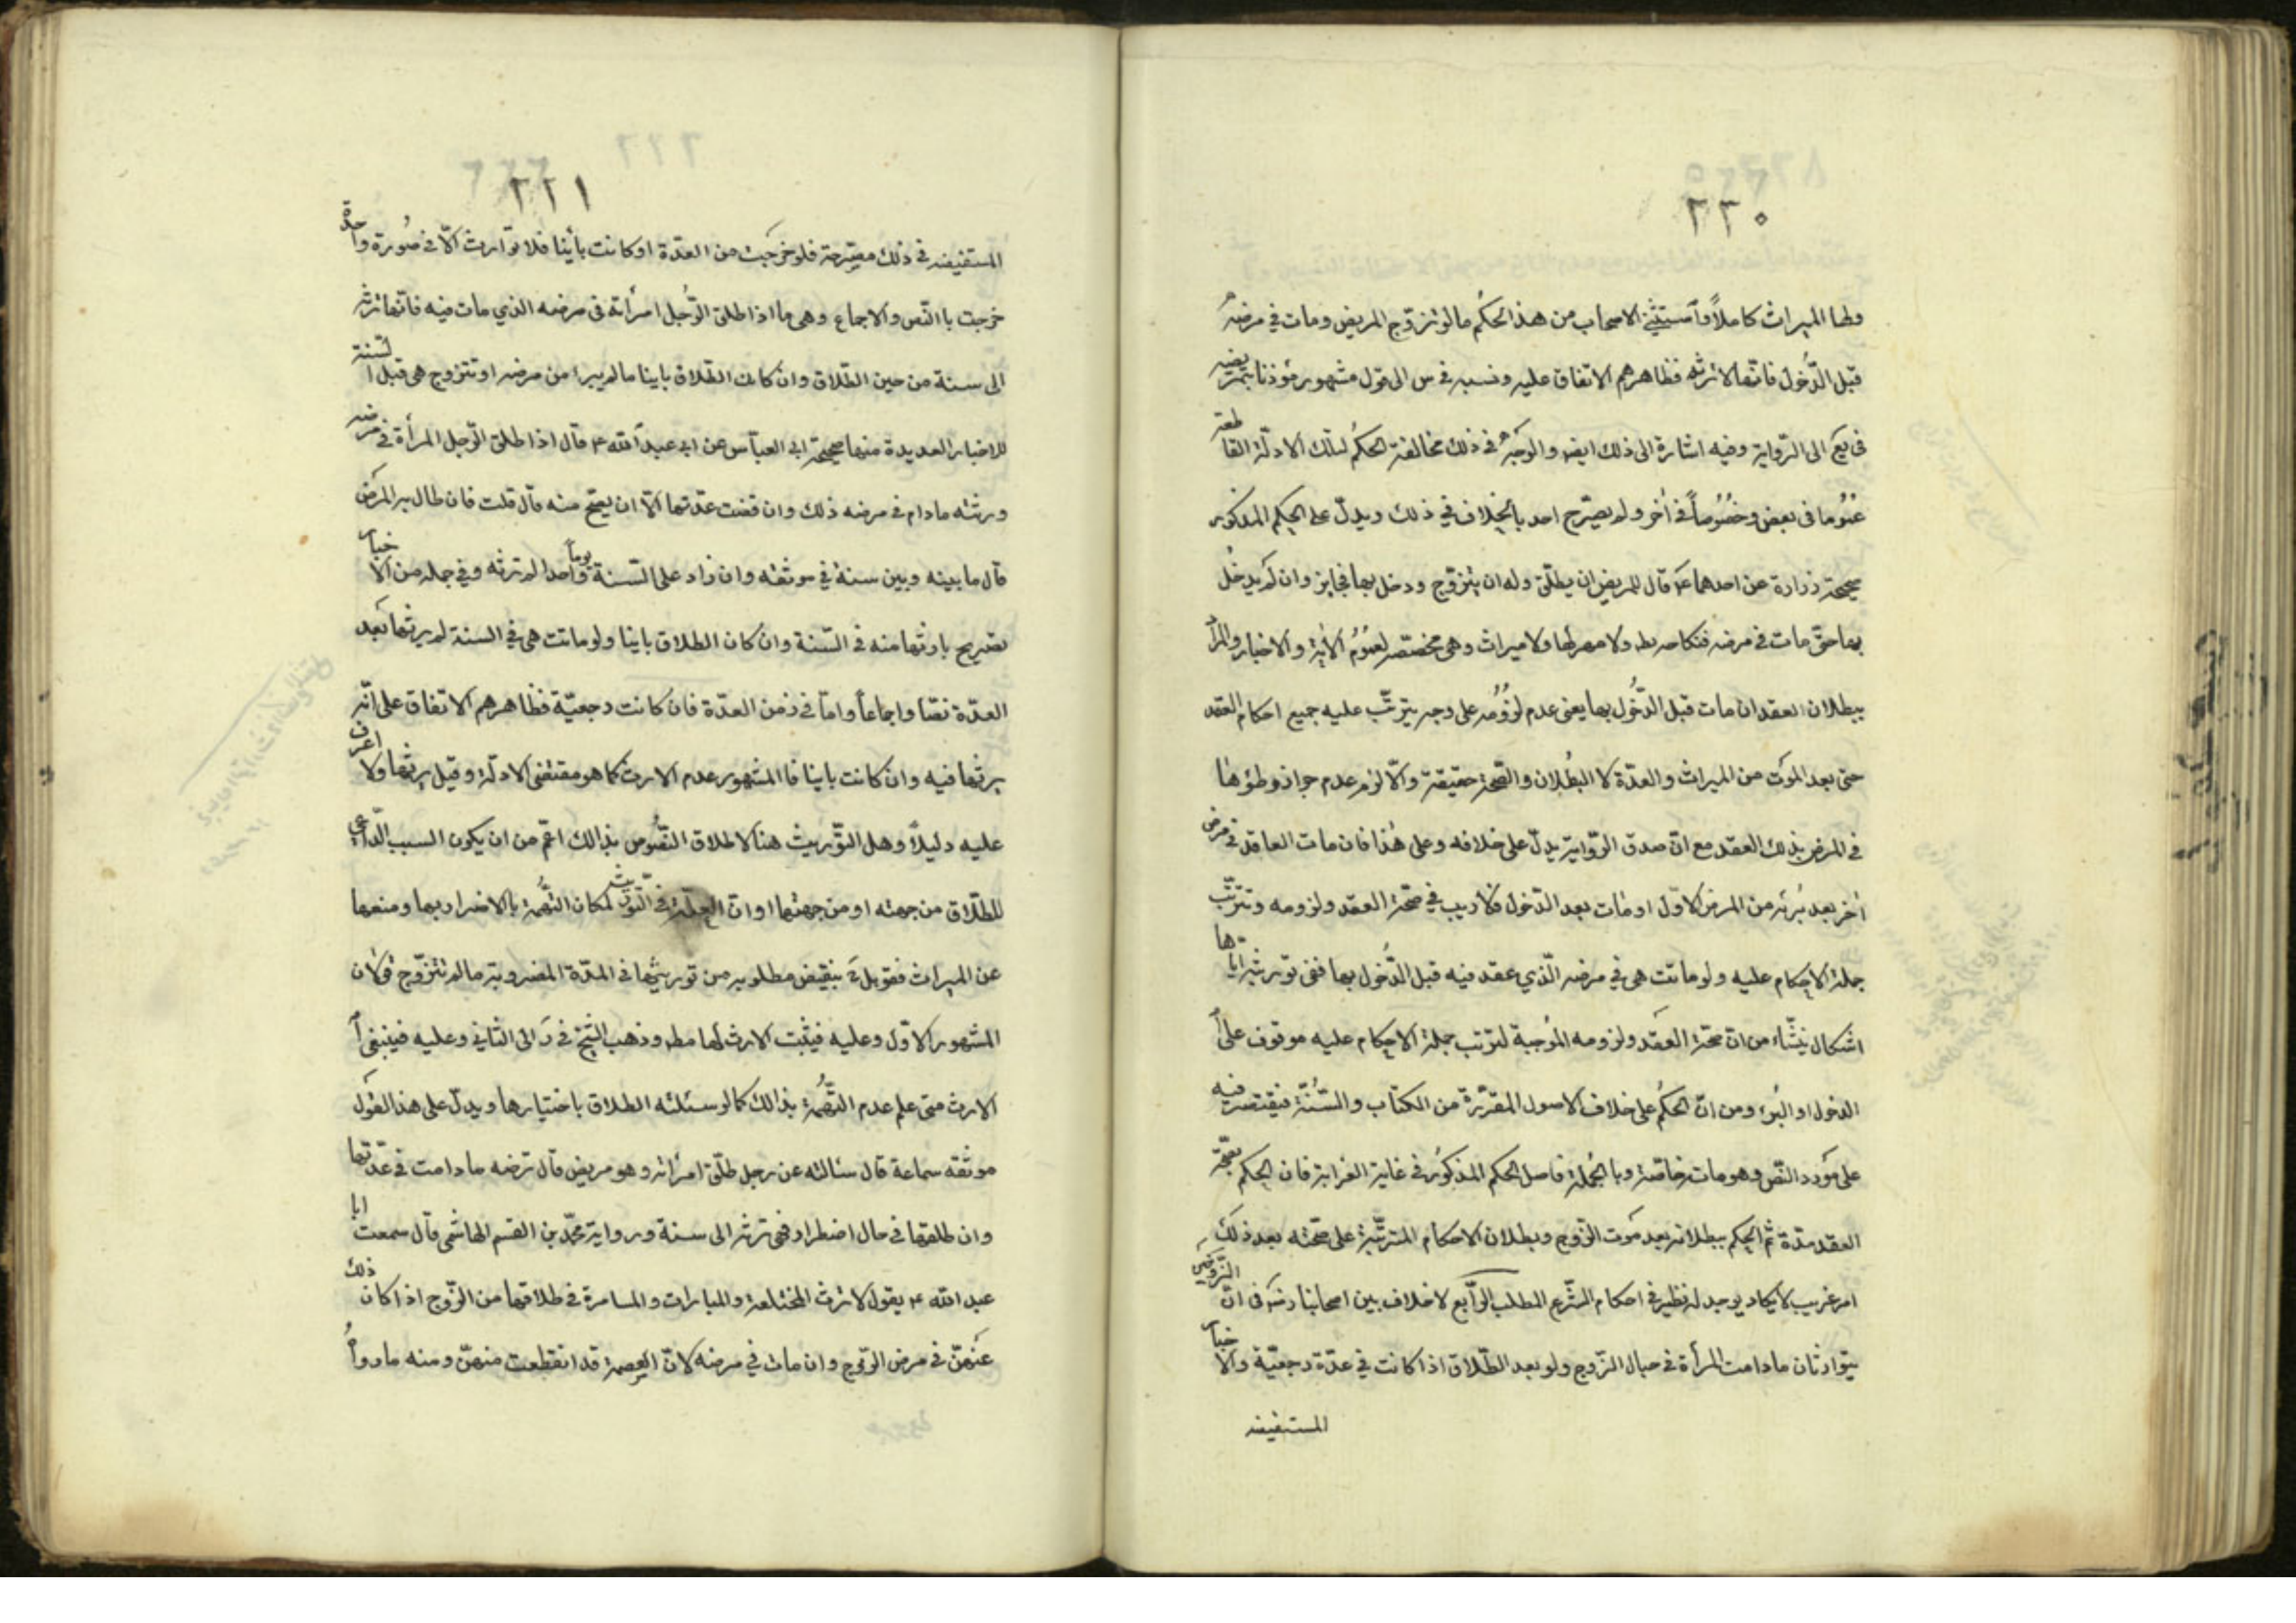 ٢٢٠
ولها الميراث كاملاً وأستثني الاصحاب من هذا الحكم ما لو تزوّج المريض ومات في مرضه
قبل الدّخول فانّها لا ترثه فظاهرهم الاتفاق عليه ونسبه في س الى قول مشهور مؤذنا بتمريضه
في يع الى الرّواية وفيه اشارة الى ذلك ايضا والوجه في ذلك مخالفة الحكم لتلك الادلّة القاطعة
عموما في بعض وخصُوصاً في أخر ولم يصرّح احد بالخلاف في ذلك ويدلّ على الحكم المذكور
صحيحة زرارة عن احدهما ع قال للمريض ان يطلّق وله ان يتزوّج ودخل بها فجايز وان لم يدخل
بها حتّى مات في مرضه فنكاحه بط ولا مهر لها ولا ميراث وهي مخصّصه لعموم الآية والاخبار والمراد
ببطلان العقد ان مات قبل الدّخول بها يعني عدم لزومه على وجه يترتّب عليه جميع احكام العقد
حتى بعد الموت من الميراث والعدّة لا البطلان والصّحة حقيقة والّا لزم عدم جواز وطؤها
في المرض بذلك العقد مع انّ صدق الرّواية يدلّ على خلافه وعلى هذا فان مات العاقد في مرض
أخر بعد بُرئه من المرض الاوّل او مات بعد الدّخول فلا ريب في صحّة العقد ولزومه وتترتّب
جملة الاحكام عليه ولو ماتت هي في مرضه الّذي عقد فيه قبل الدّخول بها ففي توريثه ايّاها
اشكال ينشاء من انّ صحّة العقد ولزومه الموجبة لترتب جملة الاحكام عليه موقوف على
الدخول او البُرء ومن انّ الحكم على خلاف الاصول المقرّرة من الكتاب والسّنّة فيقتصر فيه
على مورد النّص وهو مات خاصّة وبالجُملة فاصل الحكم المذكور في غاية الغرابة فان الحكم بصحّة
العقد مدّة ثم الحكم ببطلانه بعد موت الزّوج وبطلان الاحكام المترتّبة على صحّته بعد ذلك
امر غريب لا يكاد يوجد له نظير في احكام الشّرع المطلب الرّابع لا خلاف بين اصحابنا رض في انّ الزّوجين
يتوارثان ما دامت المرأة في حبال الزّوج ولو بعد الطّلاق اذا كانت في عدّة رجعيّة والاخبار
المستفيضه
٢٢١
المستفيضه في ذلك مصرّحة فلو خرجت من العدّة او كانت بأينا فلا توارث الّا في صُورة واحدة
خرجت باالنّص والاجماع وهي ما اذا طلق الرّجل امرأته في مرضه الذي مات فيه فانّها ترثه
الى سنة من حين الطّلاق وان كان الطّلاق باينا ما لم يبرء من مرضه او تتزوج هي قبل السّنة
للاخبار العديدة منها صحيحة ابي العبّاس عن ابي عبد الله ع قال اذا طلق الرّجل المرأة في مرضه
ورثته مادام في مرضه ذلك وان قضت عدّتها الّا ان يصحّ منه قال قلت فان طال به المرض
قال ما بينه وبين سنة في موثقه وان زاد على السّنة يوماً واحدا لم ترثه وفي جمله من الاخبار
تصريح بارثها منه في السّنة وان كان الطلاق باينا ولو ماتت هي في السنة لم يرثها بعد
العدّة نصّا واجماعاً وامّا في زمن العدّة فان كانت رجعيّة فظاهرهم الاتفاق على انّه
يرثها فيه وان كانت باينا فا المشهور عدم الارث كما هو مقتضى الادلّة وقيل يرثها ولا اعرف
عليه دليلاً وهل التّوريث هنا لاطلاق النّصُوص بذالك اعمّ من ان يكون السبب الدّاعي
للطّلاق من جهته او من جهتها او انّ العلّة في التّوريث لمكان التّهمة بالاضرار بها ومنعها
عن الميراث فقوبل بنقيض مطلوبه من توريثها في المدّة المضروبة ما لم تتزوّج قولان
المشهور الاوّل وعليه فيثبت الارث لها مطه وذهب الشّيخ في ر الى الثاني وعليه فينتفي
الارث متى علم عدم التّهمة بذالك كما لو سئلته الطلاق باختيارها ويدلّ على هذا القول
موثقه سماعة قال سئالته عن رجل طلّق امرأته وهو مريض قال ترثه ما دامت في عدّتها
وان طلقها في حال اضطرار فهي ترثه الى سنة ورواية محمّد بن القسم الهاشمي قال سمعت ابا
عبد الله ع يقول لا ترث المختلعة والمبارات والمسامرة في طلاقها من الزّوج اذا كان ذلك
عنهنّ في مرض الزّوج وان مات في مرضه لانّ العصمة قد انقطعت منهنّ ومنه ما رواه